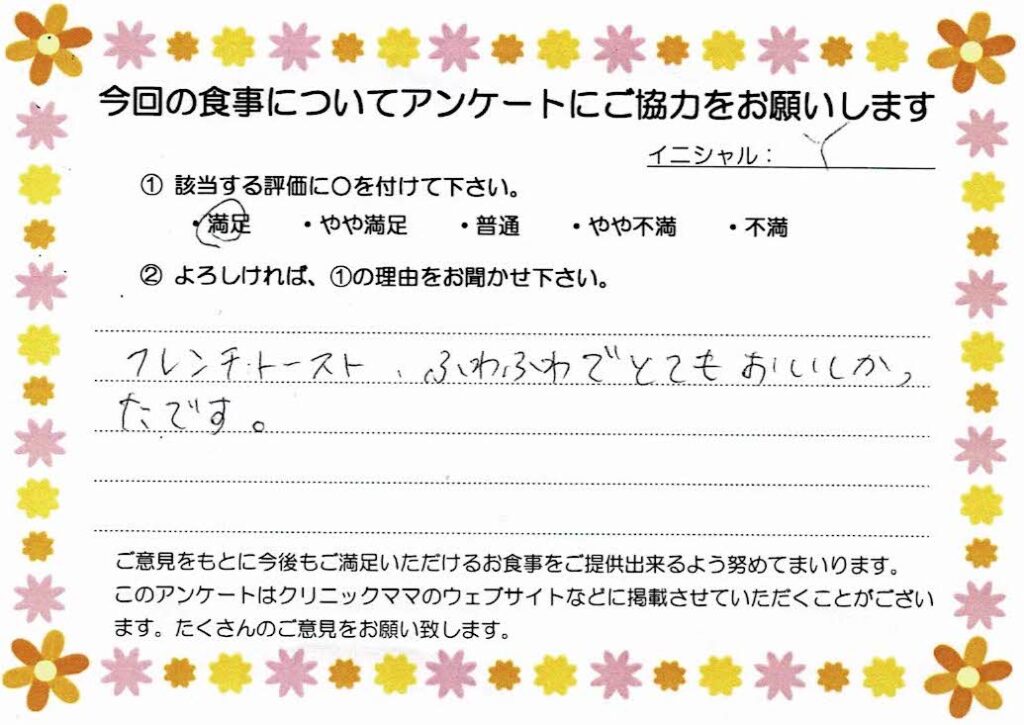 今回の食事についてアンケートにご協力をお願いします
イニシャル： Y
① 該当する評価に〇を付けて下さい。
・満足 ・やや満足 ・普通 ・やや不満 ・不満
② よろしければ、①の理由をお聞かせ下さい。
フレンチ・トースト、ふわふわでとてもおいしかっ
たです。
ご意見をもとに今後もご満足いただけるお食事をご提供出来るよう努めてまいります。
このアンケートはクリニックママのウェブサイトなどに掲載させていただくことがござい
ます。たくさんのご意見をお願い致します。